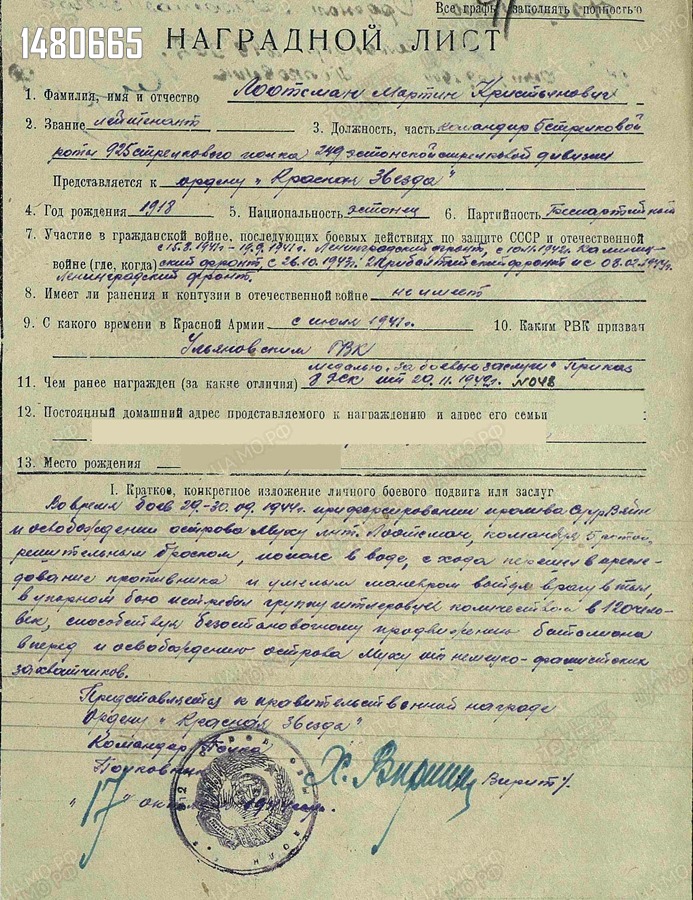 Все графы заполнять полностью
1480665
НАГРАДНОЙ ЛИСТ
1. Фамилия, имя и отчество Лоотсман Мартин Кристьянович
2. Звание лейтенант 3. Должность, часть командир 5 стрелковой
роты 925 стрелкового полка 249 эстонской стрелковой дивизии
Представляется к ордену „Красная Звезда"
4. Год рождения 1918 5. Национальность эстонец 6. Партийность беспартийный
7. Участие в гражданской войне, последующих боевых действиях по защите СССР и отечественной
с 15.8.1941 – 19.9.1941г. Ленинградский фронт, с 10.11.1942г. Калинин-
войне (где, когда) ский фронт, с 26.10.1943г. 2 Прибалтийский фронт и с 08.02.1944г.
Ленинградский фронт.
8. Имеет ли ранения и контузии в отечественной войне не имеет
9. С какого времени в Красной Армии с июля 1941г. 10. Каким РВК призван
Ульяновским ГВК
медалью „За боевые заслуги" Приказ
11. Чем ранее награжден (за какие отличия) 8 ЭСК от 20.11.1942г. №048
12. Постоянный домашний адрес представляемого к награждению и адрес его семьи
13. Место рождения
I. Краткое, конкретное изложение личного боевого подвига или заслуг
Во время боев 29.-30.09.1944г. при форсировании пролива Суур Вяйн
и освобождении острова Муху лнт. Лоотсман, командуя 5 ротой
решительным броском, по пояс в воде, с хода перешел в пресле-
дование противника и умелым маневром выйдя врагу в тыл,
в упорном бою истребил группу гитлеровцев количеством в 120 чело-
век, способствуя безостановочному продвижению батальона
вперед и освобождению острова Муху от немецко-фашистских
захватчиков.
Представляется к правительственной награде
Ордену „Красная Звезда"
Командир Полка
Полковник Х. Вирит /Вирит/.
„17" октября 1944 года.